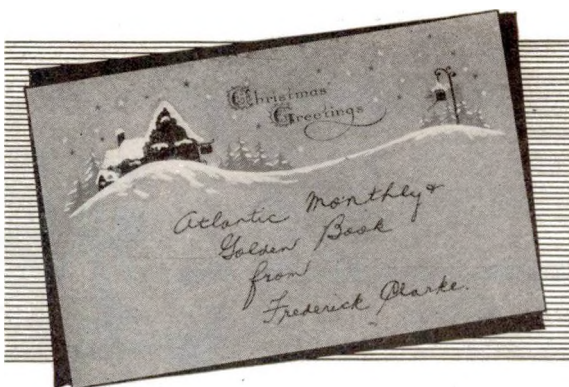 Christmas
Greetings
Atlantic Monthly &
Golden Book
from
Frederick Clarke.